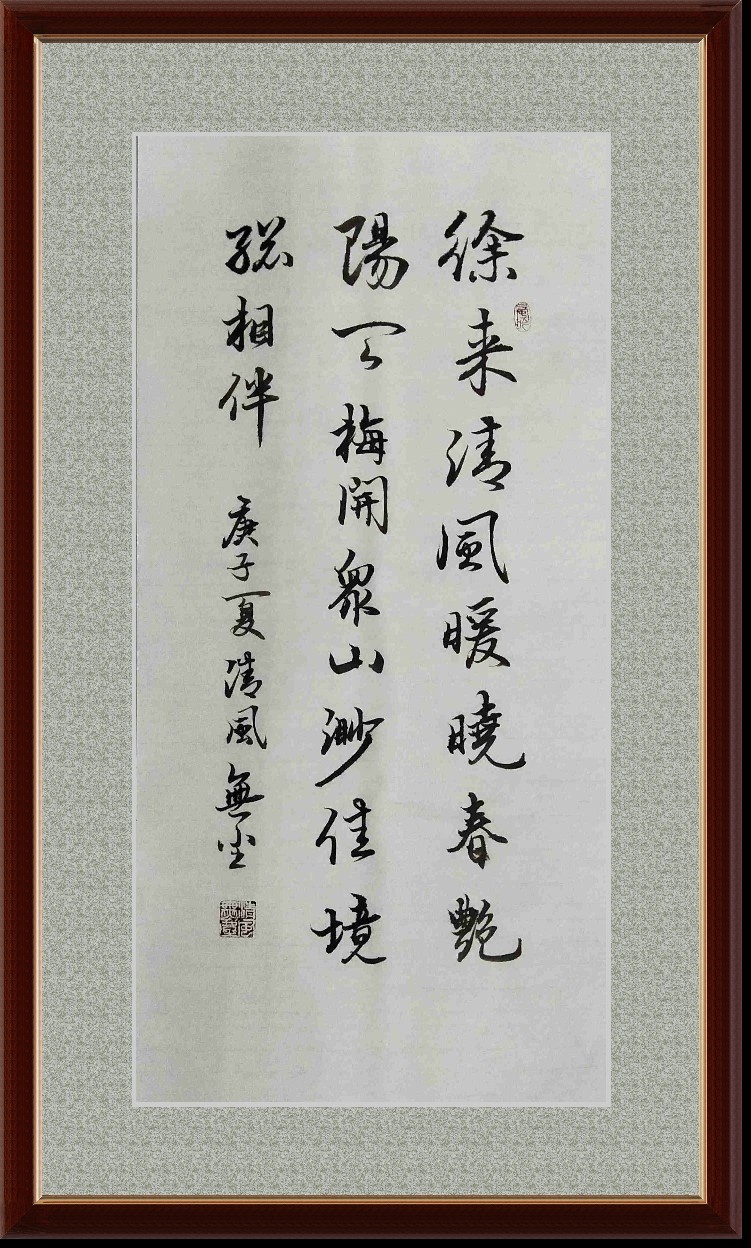 徐来清風暖曉春艶
陽天梅開眾山渺佳境
総相伴 庚子夏清風無尘